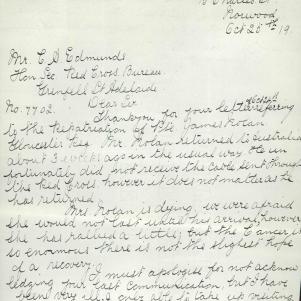 Charles St
Norwood
Oct 20th 19
Mr. C A Edmunds
Hon Sec Red Cross Bureau.
Grenfell St Adelaide
Dear Sir
No. 7702.
Thankyou for your letter referring
to the Repatriation of Pte James Nolan
Gloucester Reg Mr Nolan returned to Australia
about 3 weeks ago in the usual way He un
fortunately did not receive the Cable sent through
The Red Cross however it does not matter as he
has returned
Mrs Nolan is dying, we were afraid
she would not last until his arrival, however
she has rallied a little, but the Cancer is
so enormous there is not the slightest hope
of a recovery.
I must apologise for not acknow
ledging your last Communication, but I have
been very ill &